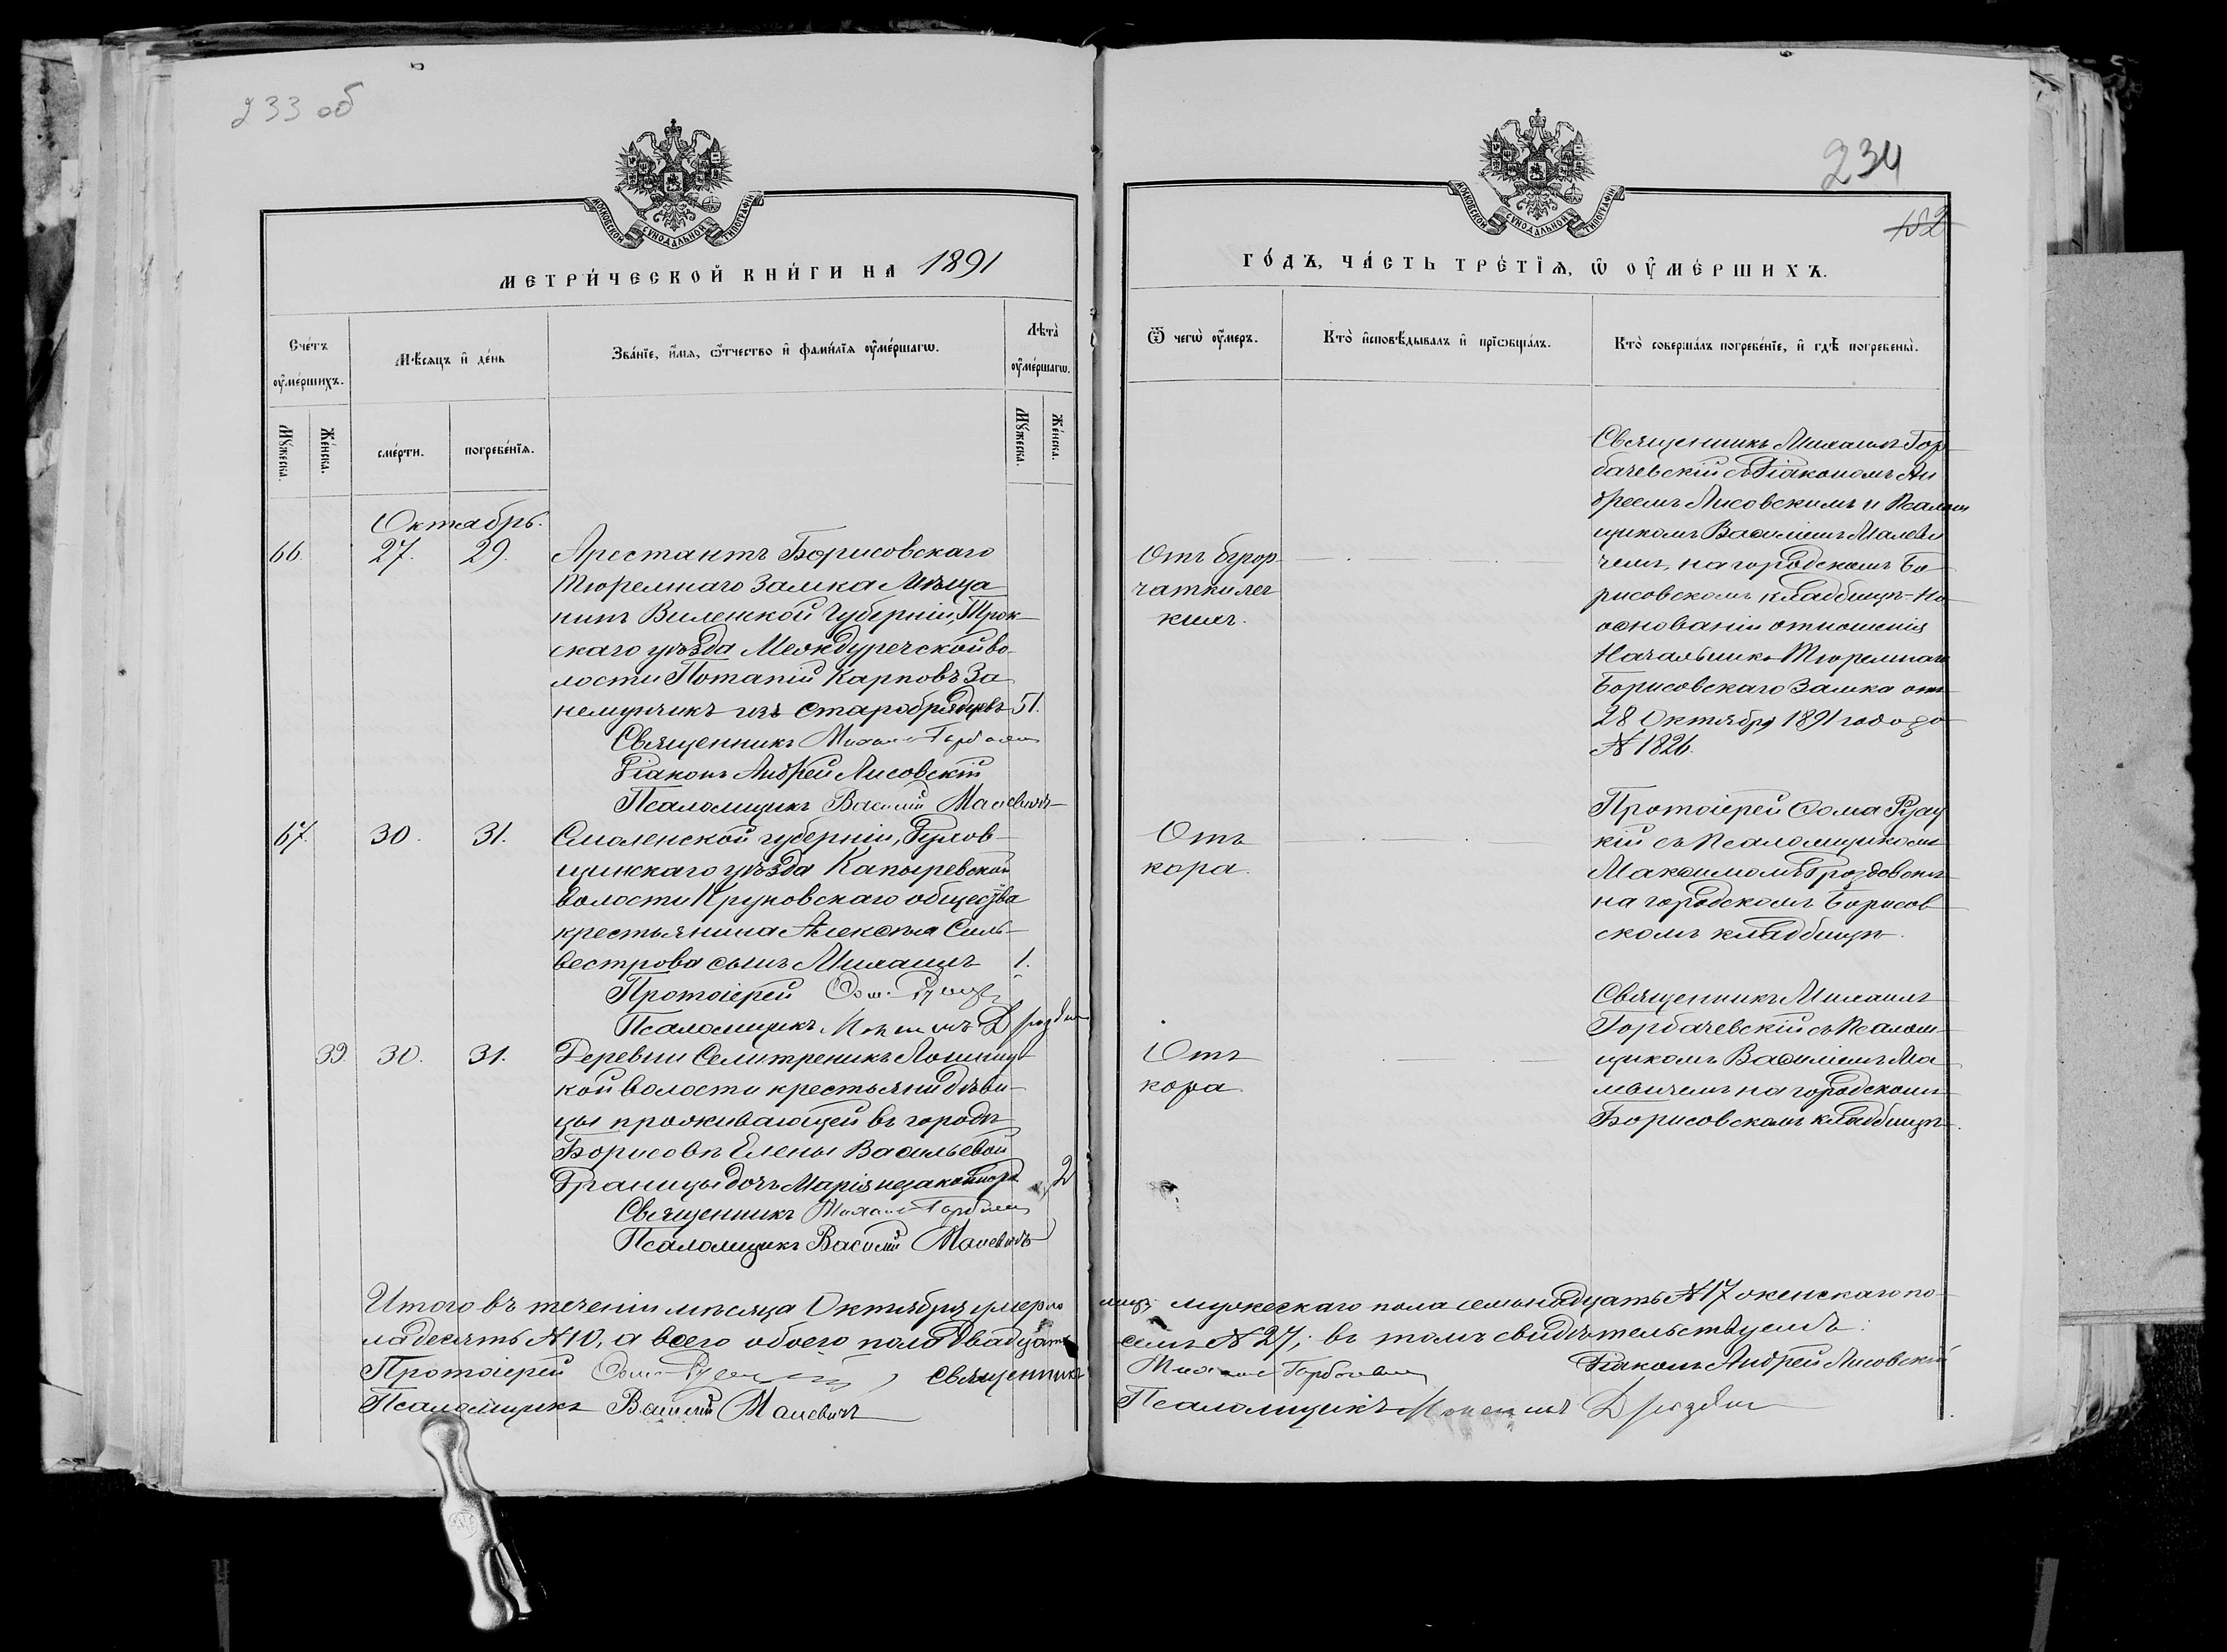 233 об
МОСКОВСКОЙ СѴНОДАЛЬНОЙ ТИПОГРАФІИ
МЕТРИ́ЧЕСКОЙ КНИ́ГИ НА 1891
Сче́тъ оу҆ме́ршихъ.
Мѣ́сяцъ и҆ де́нь
Зва́нїе, и҆́мя, ѻ҆́тчество и҆ фами́лїя оу҆ме́ршагѡ.
Лѣта̀ оу҆ме́ршагѡ.
Мꙋ́жеска.
Же́нска.
сме́рти.
погребе́нїя.
Мꙋ́жеска.
Же́нска.
Октябрь.
66. 27. 29. Арестантъ Борисовскаго
Тюремнаго Замка Мѣща
нинъ Виленской Губерніи, Трок-
скаго уѣзда Междуречской во-
лости Потапій Карповъ За
немунчикъ изъ старобрядцевъ 51.
Священникъ Михаилъ
Діаконъ Андрей Лисовскій
Псаломщикъ Василій Малевичъ
67. 30. 31. Смоленской губерніи, Духов-
щинскаго уѣзда Капыревской
волости Круковскаго общества
крестьянина Алексѣя Силь-
вестрова сынъ Михаилъ 1.
Протоіерей Ѳома
Псаломщикъ Максимъ
39 30. 31. Деревни Селитреникъ Лошниц-
кой волости крестьян. дѣви-
цы проживающей въ городѣ
Борисовѣ Елены Васильевой
дочь Марія незаконнор. 2
Священникъ Михаилъ
Псаломщикъ Василій Малевичъ
Итого въ теченіи мѣсяца Октября умерло
ла десять № 10, а всего обоего пола двадцать
Протоіерей Ѳома Священникъ
Псаломщикъ Василій Малевичъ
234
182
МОСКОВСКОЙ СѴНОДАЛЬНОЙ ТИПОГРАФІИ
ГО́ДЪ, ЧА́СТЬ ТРЕ́ТЇѦ, Ѡ҆ ОУ҆МЕ́РШИХЪ.
Ѿ чегѡ̀ оу҆́меръ.
Кто̀ и҆сповѣ́дывалъ и҆ прїѡбща́лъ.
Кто̀ соверша́лъ погребе́нїе, и҆ гдѣ̀ погребены̀.
Священникъ Михаилъ Гор
бачевскій съ Діакономъ Ан
дреемъ Лисовскимъ и Псалом
щикомъ Василіемъ Малеви
чемъ, на городскомъ Бо
рисовскомъ кладбищѣ - На
основаніи отношенія
Начальника Тюремнаго
Борисовскаго Замка отъ
28 Октября 1891 года за
№ 1826.
Отъ бугор-
чатки лег
кихъ.
Протоіерей Ѳома
кій съ Псаломщикомъ
Максимомъ Дроздовскимъ
на городскомъ Борисов
скомъ кладбищѣ.
Отъ
кора.
Священникъ Михаилъ
Горбачевскій съ Псалом-
щикомъ Василіемъ Ма
левичемъ на городскомъ
Борисовскомъ кладбищѣ.
Отъ
кора
мужескаго пола семьнадцать № 17 женскаго по-
семь № 27; въ томъ свидѣтельствуемъ:
Михаилъ Горбачевскій Діаконъ Андрей Лисовскій
Псаломщикъ Максимъ